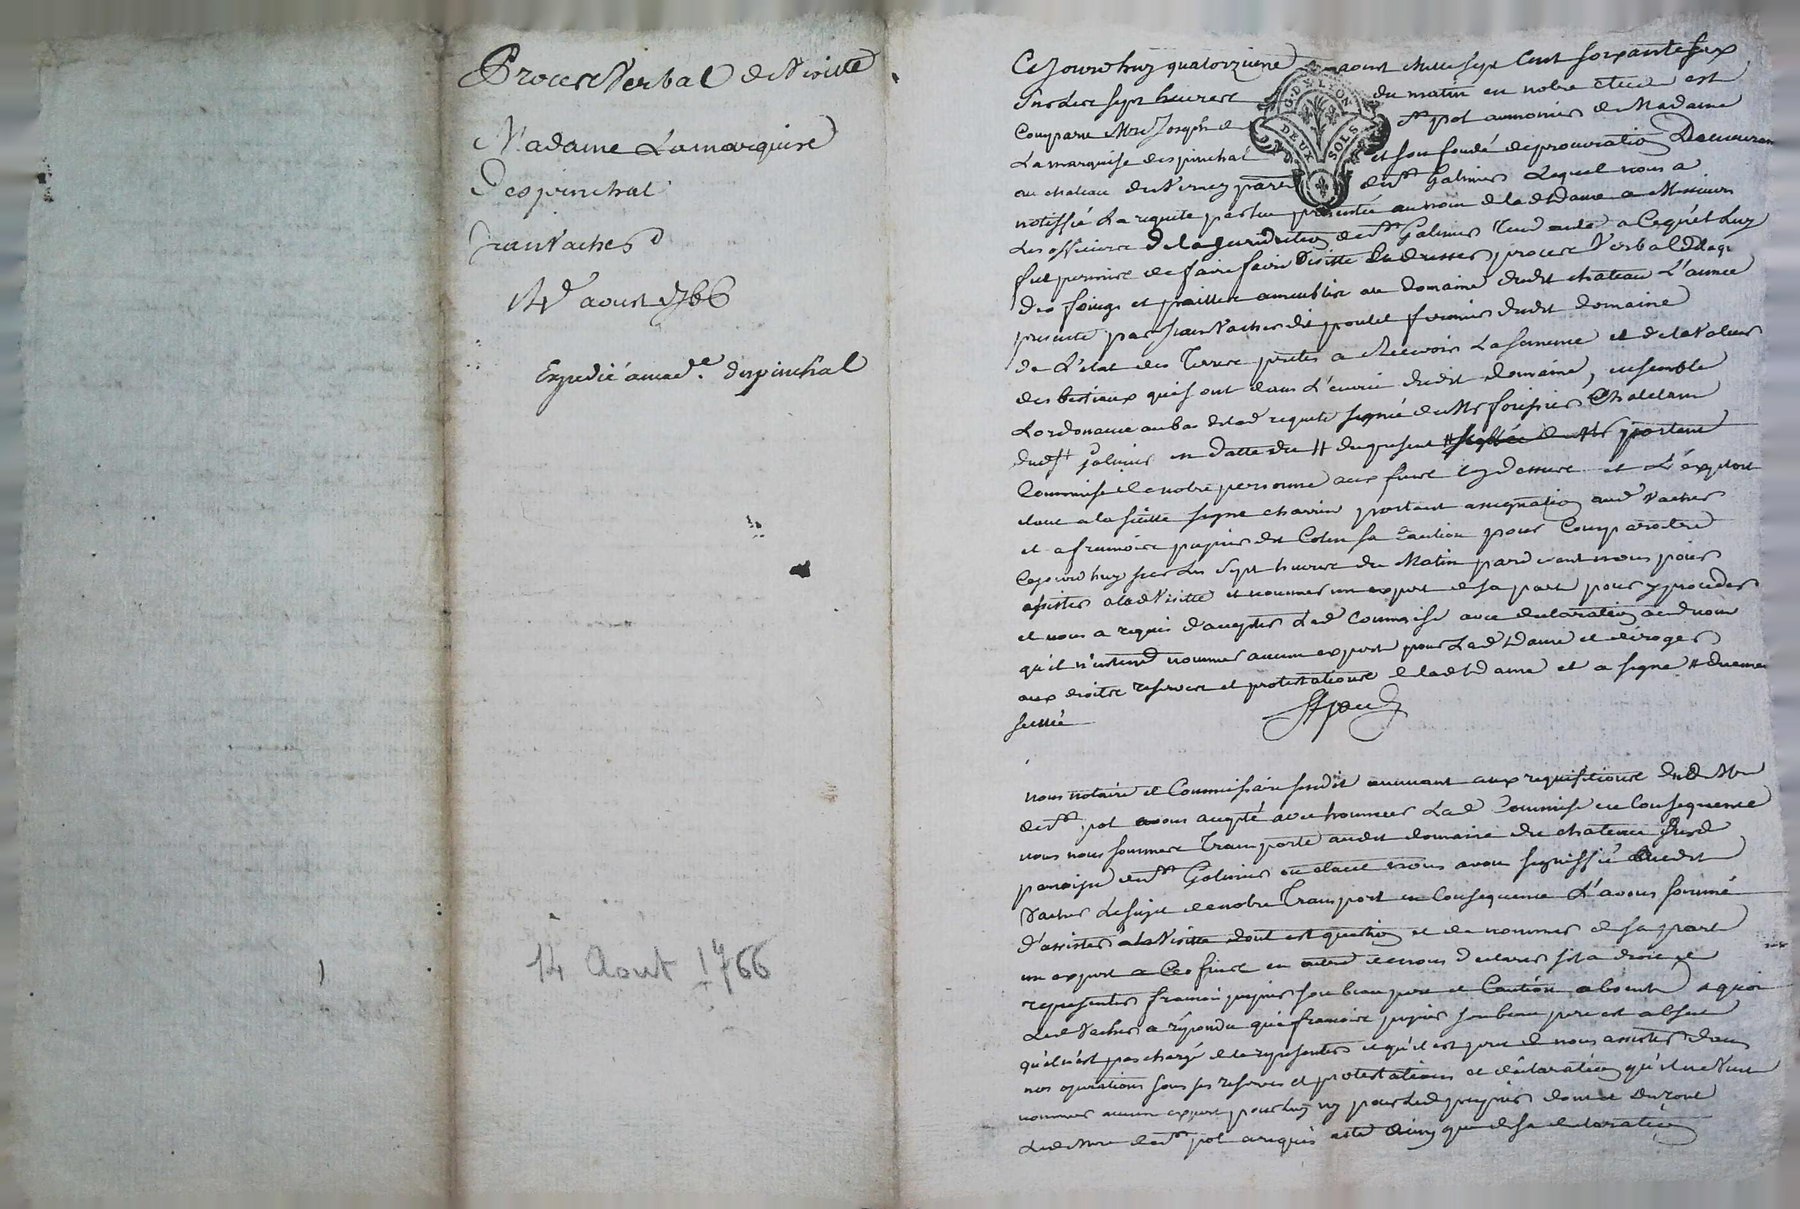 Proces Verbal de Visitte
Madame La marquise
Despinchal
Jean Vacher
14e aoust 1766
Expedié a mad.e despinchal
14 Aout 1766
Ce jourdhuy quatorzieme aoust mille sept Cent soixante six
Sur Les sept heures du matin en notre etude est
Comparu Mre Joseph de St pol aumonier de Madame
La marquise despinchal et son fondé de procuration Demeurant
au chateau du Verney parr de St Galmier Lequel nous a
notiffié La requete par luy presentée au nom de lad Dame a Messieurs
Les officiers de la Jurisdiction de St Galmier tendante a Ce qu'el luy
fut permis de faire faire Visitte et dresser proces Verbal
des foings et pailles ameublis au domaine dudit chateau L'année
presente par Jean Vacher dit poulet fermier dudit domaine
de L'etat des Terres pretes a Recevoir La semence et de la Valeur
des bestiaux qui sont dans L'ecurie dudit domaine, ensemble
Lordonance au bas de lad requete signé de Mr Chatelain
dud St Galmier en datte du 11 du present portant
Commise de notre personne aux fins cy dessus et L'exploit
etant a la suitte signe charrin portant assignation aud Vacher
et a francoise pupier dit Colin sa Caution pour Comparoitre
Cejourdhuy sur Les Sept heures du Matin pardevant nous pour
assister a lad Visitte et nommer un expert de sa part pour y proceder
et nous a requis d'accepter Lad Commise avec declaration
qu'il n'entend nommer aucun expert pour Lad Dame et deroger
aux droits reserves et protestations de lad Dame et a signe
St pol
nous notaire et Commissaire susdit annuant aux requisitions dud Mre
de St pol avons accepté avec honneur Lad Commise en Consequence
nous nous sommes Transporté audit domaine du chateau
paroisse de St Galmier ou etant nous avons signiffié audit
Vacher Le sujet de notre Transport en Consequence L'avons sommé
d'assister a la Visitte dont est question et de nommer de sa part
un expert a Ces fins en outre de nous declarer s'il a droit de
representer francois pupier son beau pere et Caution absent a quoi
Led Vacher a repondu que francois pupier son beau pere est absent
qu'il n'est pas chargé de le representer et qu'il est pret de nous assister dans
nos operations sous ses reserves et protestations et declaration qu'il ne Veut
nommer aucun expert pour luy ny pour led pupier dont et du tout
Led Mre de St pol a requis acte ainsy que de sa declaration
G. DE LYON
DEUX SOLS